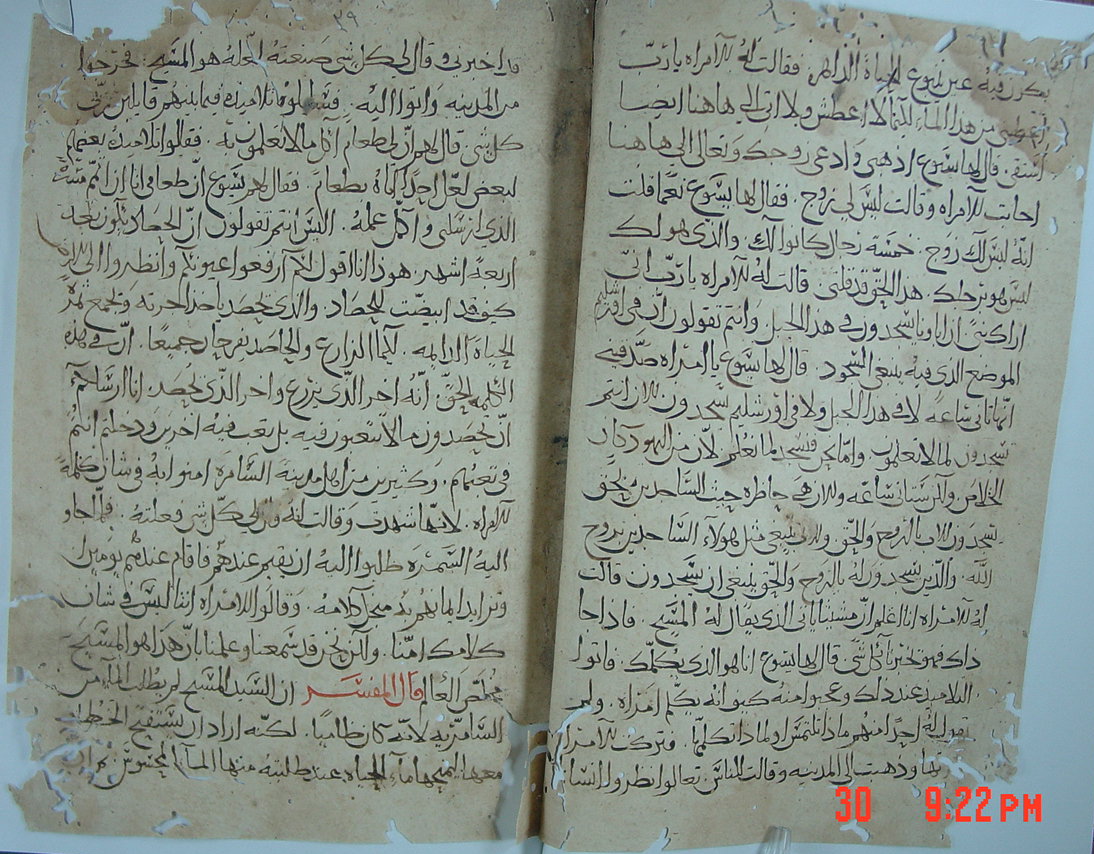 يكون فيه عين ينبوع لحياة الدايمه. فقالت له الامراه يا رب
اعطيني من هذا الماء لكيما لا اعطش ولا اتي الي هاهنا ايضا
استقي. قال لها يسوع اذهبي وادعي زوجك وتعالي الي هاهنا
اجابت الامراه وقالت ليس لي زوج. فقال لها يسوع نعما قلت
انه ليس لك زوج. خمسة رجال كانوا لك. والذي هو لك
ليس هو برجلك. هذا الحق قد قلتي. قالت له الامراه يا رب اني
اراك نبي ان اباونا سجدوا في هذا الجبل. وانتم تقولون ان في اورشليم
الموضع الذي فيه ينبغي السجود. قال لها يسوع يا امراه صدقيني
انها تاتي ساعه لا في هذا الجبل ولا في اورشليم تسجدون للاب انتم
تسجدون لما لا تعلمون واما نحن فنسجد لما نعلم لان من اليهود كان
الخلاص ولكن ستاتي ساعه وللان هي حاضره حيث الساجدين بالحق
يسجدون للاب بالروح والحق وللاب يبتغي مثل هولاء الساجدين بروح
الله. والذين يسجدون له بالروح والحق ينبغي ان يسجدون قالت
له الامراه انا اعلم ان مسيا ياتي الذي يقال له المسيح. فاذا جا
ذاك فهو يخبرنا كل شي قال لها يسوع انا هو الذي يكلمك. فاتوا
التلاميذ عند ذلك وعجبوا منه كيف انه يكلم امراه. ولم
يقول له احدا منهم ماذا تلتمس ولماذا تكلمها. فتركت الامراه
وذهبت الي المدينه وقالت للناس تعالوا انظروا انسانا
٣٩
قد اخبرني وقال لي كل شي صنعته لعله هو المسيح. فخرجوا
من المدينه واتوا اليه. فسالوه تلاميذه فيما بينهم قايلين ربي
كل شي قال لهم ان لي طعام اكل ما لا تعلمون به. فقالوا تلاميذه بعضهم
لبعض لعل احدا اتاه بطعام. فقال لهم يسوع ان طعامي انا ان اتمم مشية
الذي ارسلني واكمل عمله. اليس انتم تقولون ان الحصاد يكون بعد
اربعة اشهر. هوذا انا اقول لكم ارفعوا عيونكم وانظروا الي
كيف قد ابيضت للحصاد والذي يحصد ياخذ اجرته ويجمع ثمرة
لحياة الدايمه. لكيما الزارع والحاصد يفرحان جميعا. ان في هذه
الكلمه الحق انه اخر الذي يزرع واخر الذي يحصد. انا ارسلتكم
ان تحصدون ما لا تتعبون فيه بل تعب فيه اخرين ودخلتم انتم
في تعبهم. وكثيرين من اهل مدينة السامره امنوا به في شان كلمة
الامراه. لانها شهدت وقالت انه قال لي كل شي فعلته. فلما جاو
اليه السمره طلبوا اليه ان يقيم عندهم فاقام عندهم يومين
وتزايد ايمانهم به من اجل كلامه. وقالوا للامراه اننا ليس في شان
كلامك امنا. ولكن نحن قد سمعنا وعلمنا بان هذا هو المسيح
مخلص العالم قال المفسر ان السيد المسيح لم يطلب الما من
السامريه لانه كان ظاميا. لكنه اراد ان يستفتح الخطاب
معها ليمنحها ماء الحياه عند طلبته منها الما المحسوس